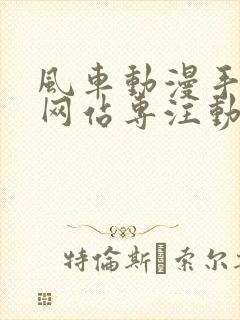 風車動漫手
网佔專注動
特倫斯·索尔